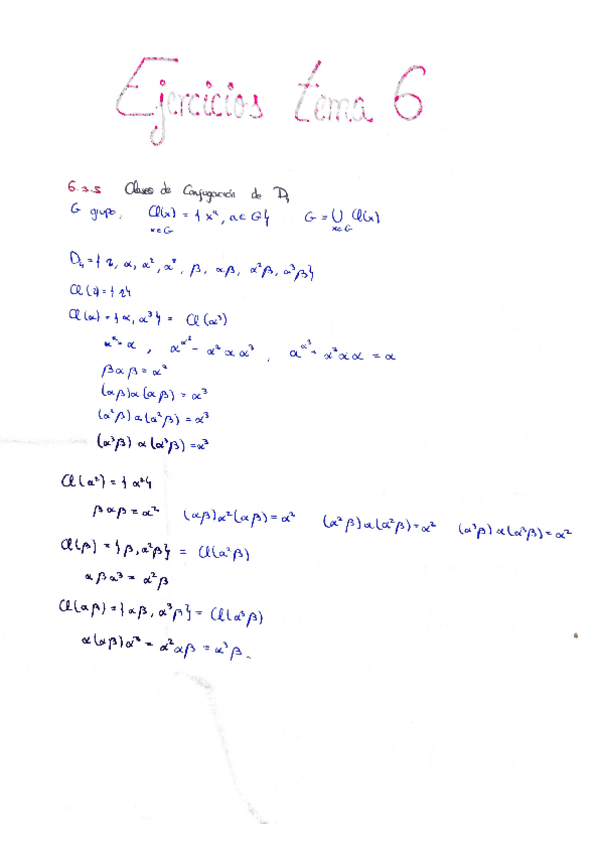 Ejercicios tema 6
6.3.5 Clases de Conjugación de D₄
G grupo, Cl(x) = { xᵃ, a ∈ G }   G = ⋃ Cl(x)
x∈G   x∈G
D₄ = { 1, α, α², α³, β, αβ, α²β, α³β }
Cl(1) = { 1 }
Cl(α) = { α, α³ } = Cl(α³)
α^α = α , α^α² = α² α α² , α^α³ = α³ α α = α
β α β = α³
(αβ) α (αβ) = α³
(α²β) α (α²β) = α³
(α³β) α (α³β) = α³
Cl(α²) = { α² }
β α β = α²   (αβ) α² (αβ) = α²   (α²β) α (α²β) = α²   (α³β) α (α³β) = α²
Cl(β) = { β, α²β } = Cl(α²β)
α β α³ = α²β
Cl(αβ) = { αβ, α³β } = Cl(α³β)
α(αβ)α³ = α²αβ = α³β.